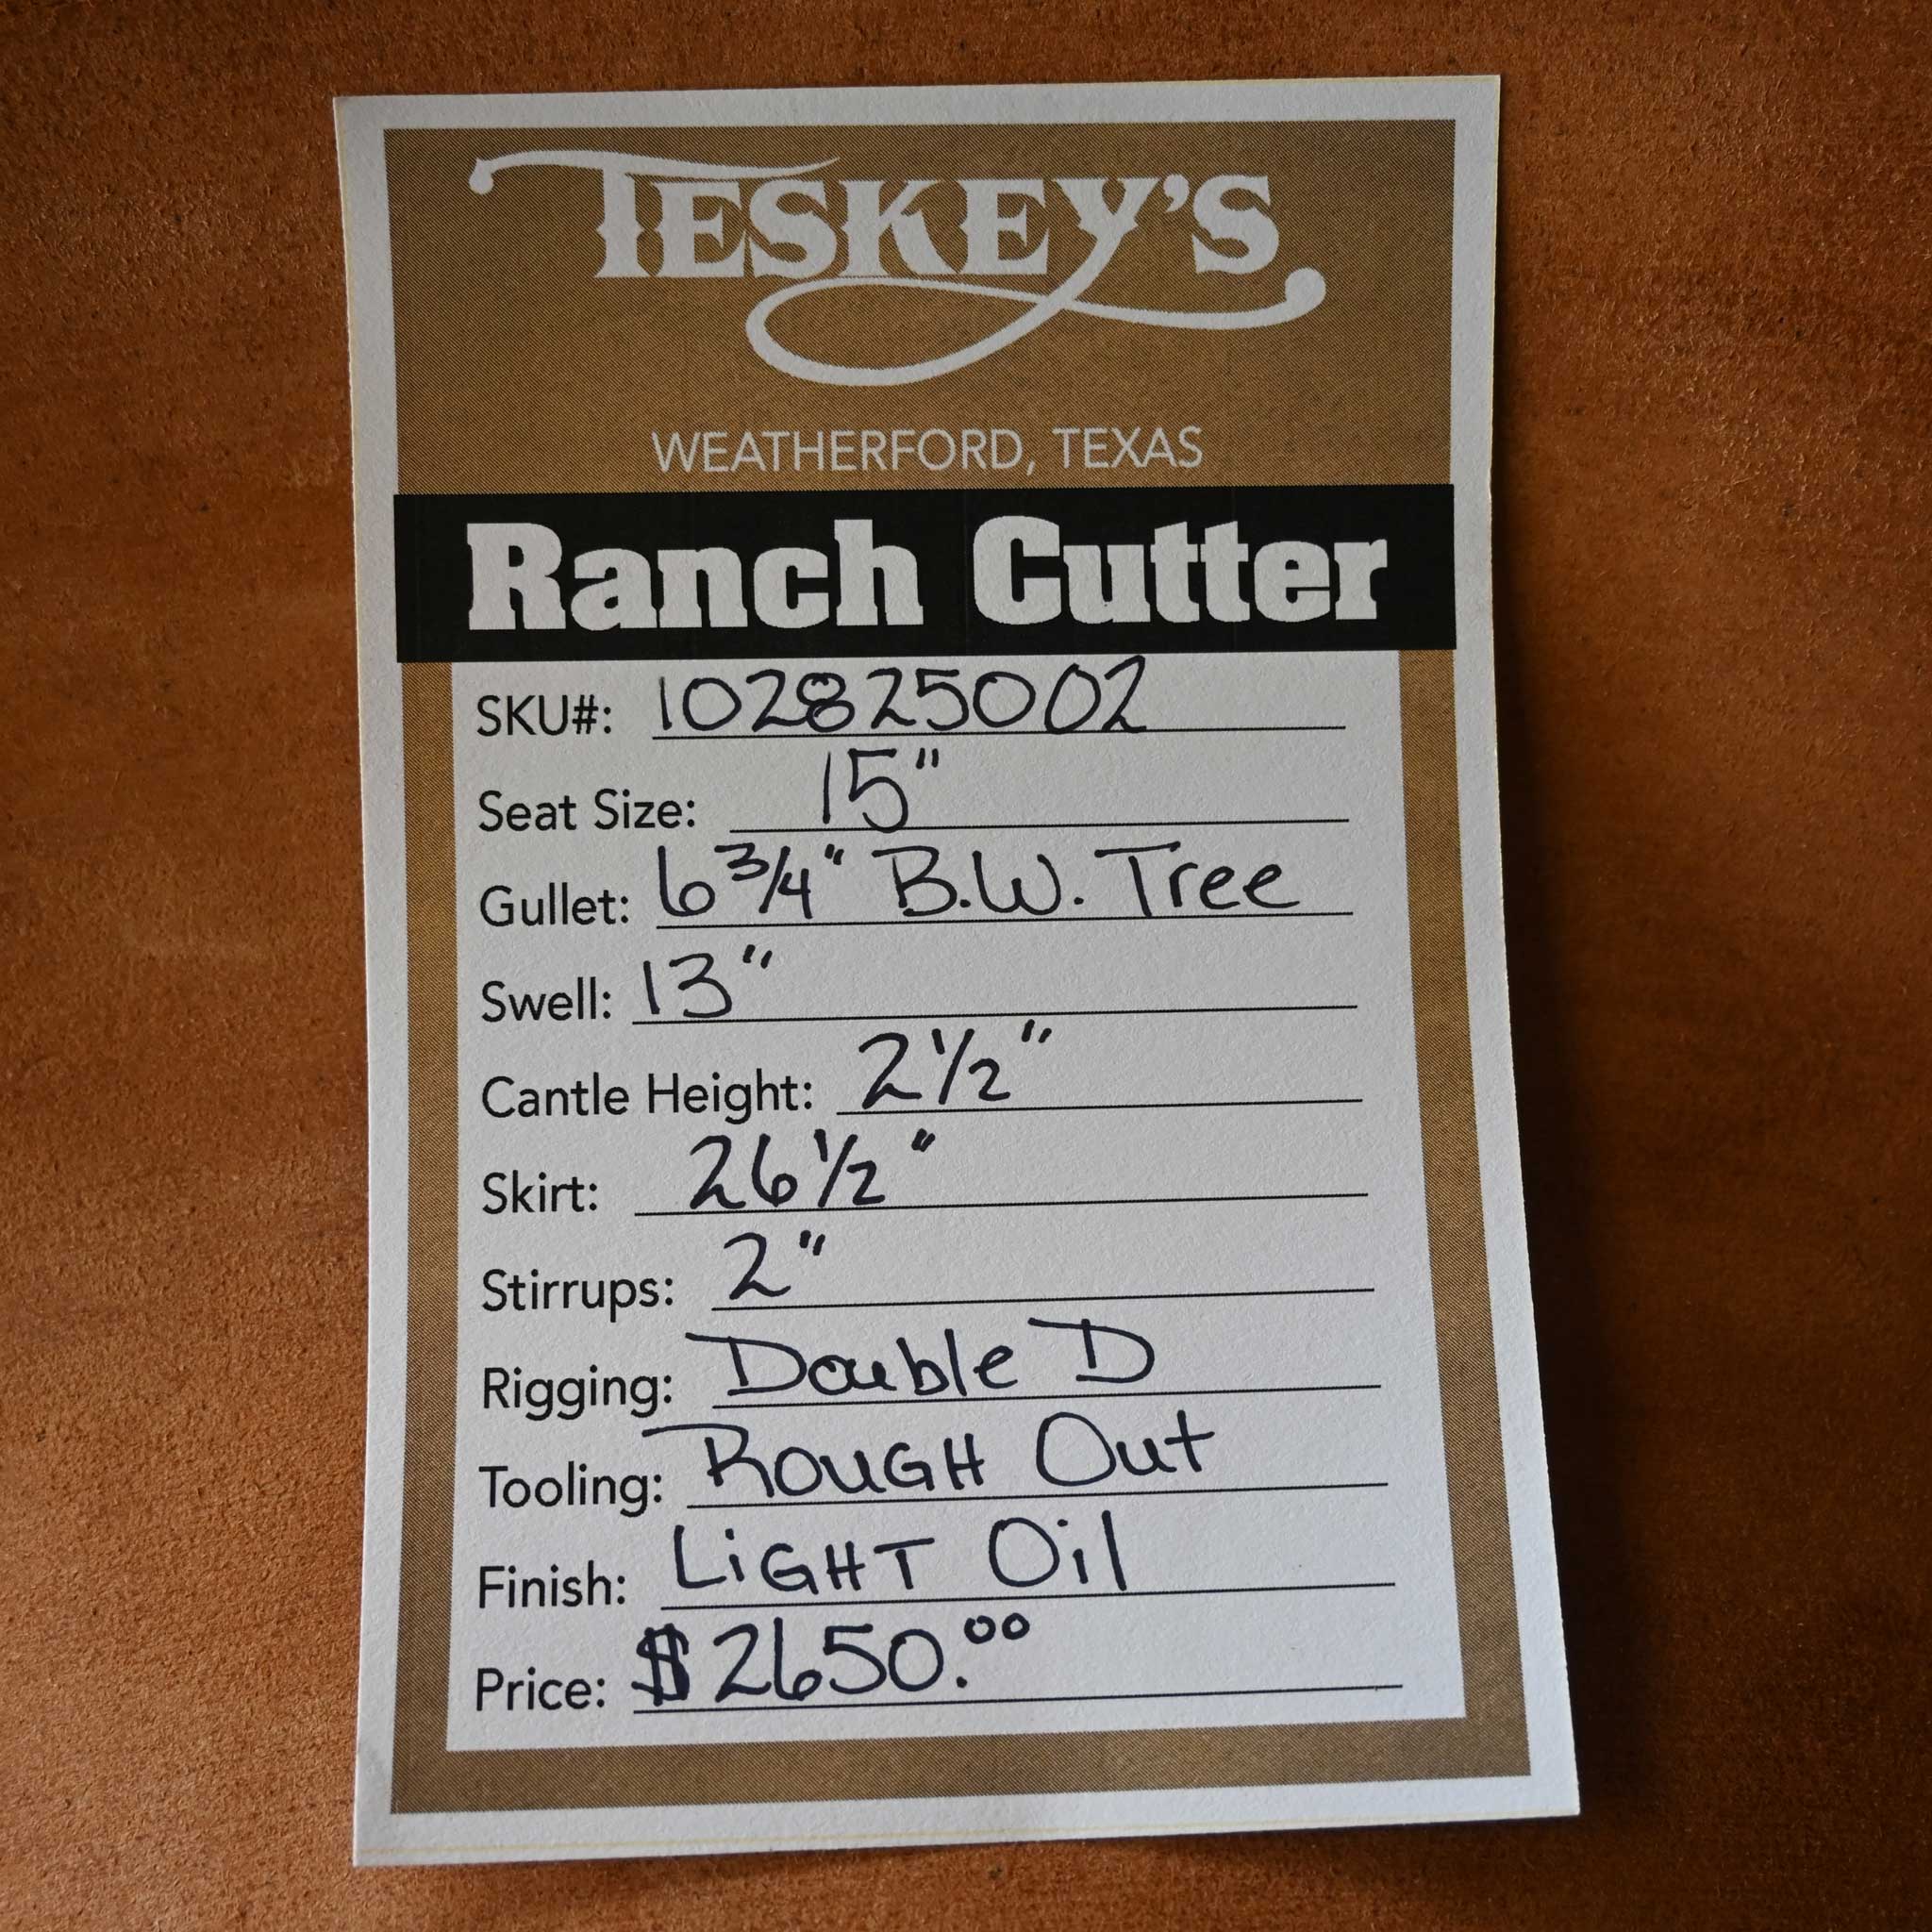 TESKEY'S
WEATHERFORD, TEXAS
Ranch Cutter
SKU#: 102825002
Seat Size: 15"
Gullet: 6 3/4" B.W. Tree
Swell: 13"
Cantle Height: 2 1/2"
Skirt: 26 1/2"
Stirrups: 2"
Rigging: Double D
Tooling: ROUGH Out
Finish: LiGHT Oil
Price: $2650.00